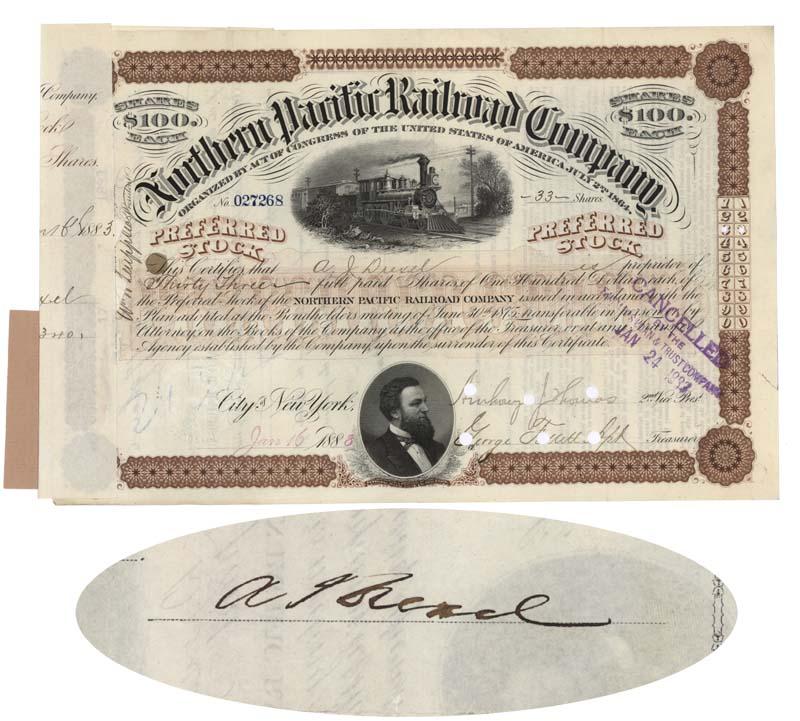 Company.
Shares.
1883.
SHARES
$100.
EACH
SHARES
$100.
EACH
Northern Pacific Railroad Company,
ORGANIZED BY ACT OF CONGRESS OF THE UNITED STATES OF AMERICA JULY 2ND 1864.
No. 027268
—33— Shares.
PREFERRED
STOCK
PREFERRED
STOCK
This Certifies that A J Drexel is proprietor of
Thirty Three full paid Shares of One Hundred Dollars each of
the Preferred Stock of the NORTHERN PACIFIC RAILROAD COMPANY issued in accordance with the
Plan adopted at the Bondholders meeting of June 30th 1875, transferable in person or by
Attorney, in the Books of the Company at the office of the Treasurer, or at any Transfer
Agency established by the Company, upon the surrender of this Certificate.
CANCELLED
THE
& TRUST COMPANY
JAN 24 1883
City of New York,
Jan 16 1883
2nd Vice Prest.
George Treasurer
1 2 3 4 5 6 7 8 9 0
1 2 3 4 5 6 7 8 9 0
A J Drexel